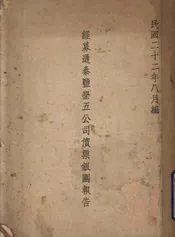 民國二十二年八月編
經募通泰鹽墾五公司債票銀團報告